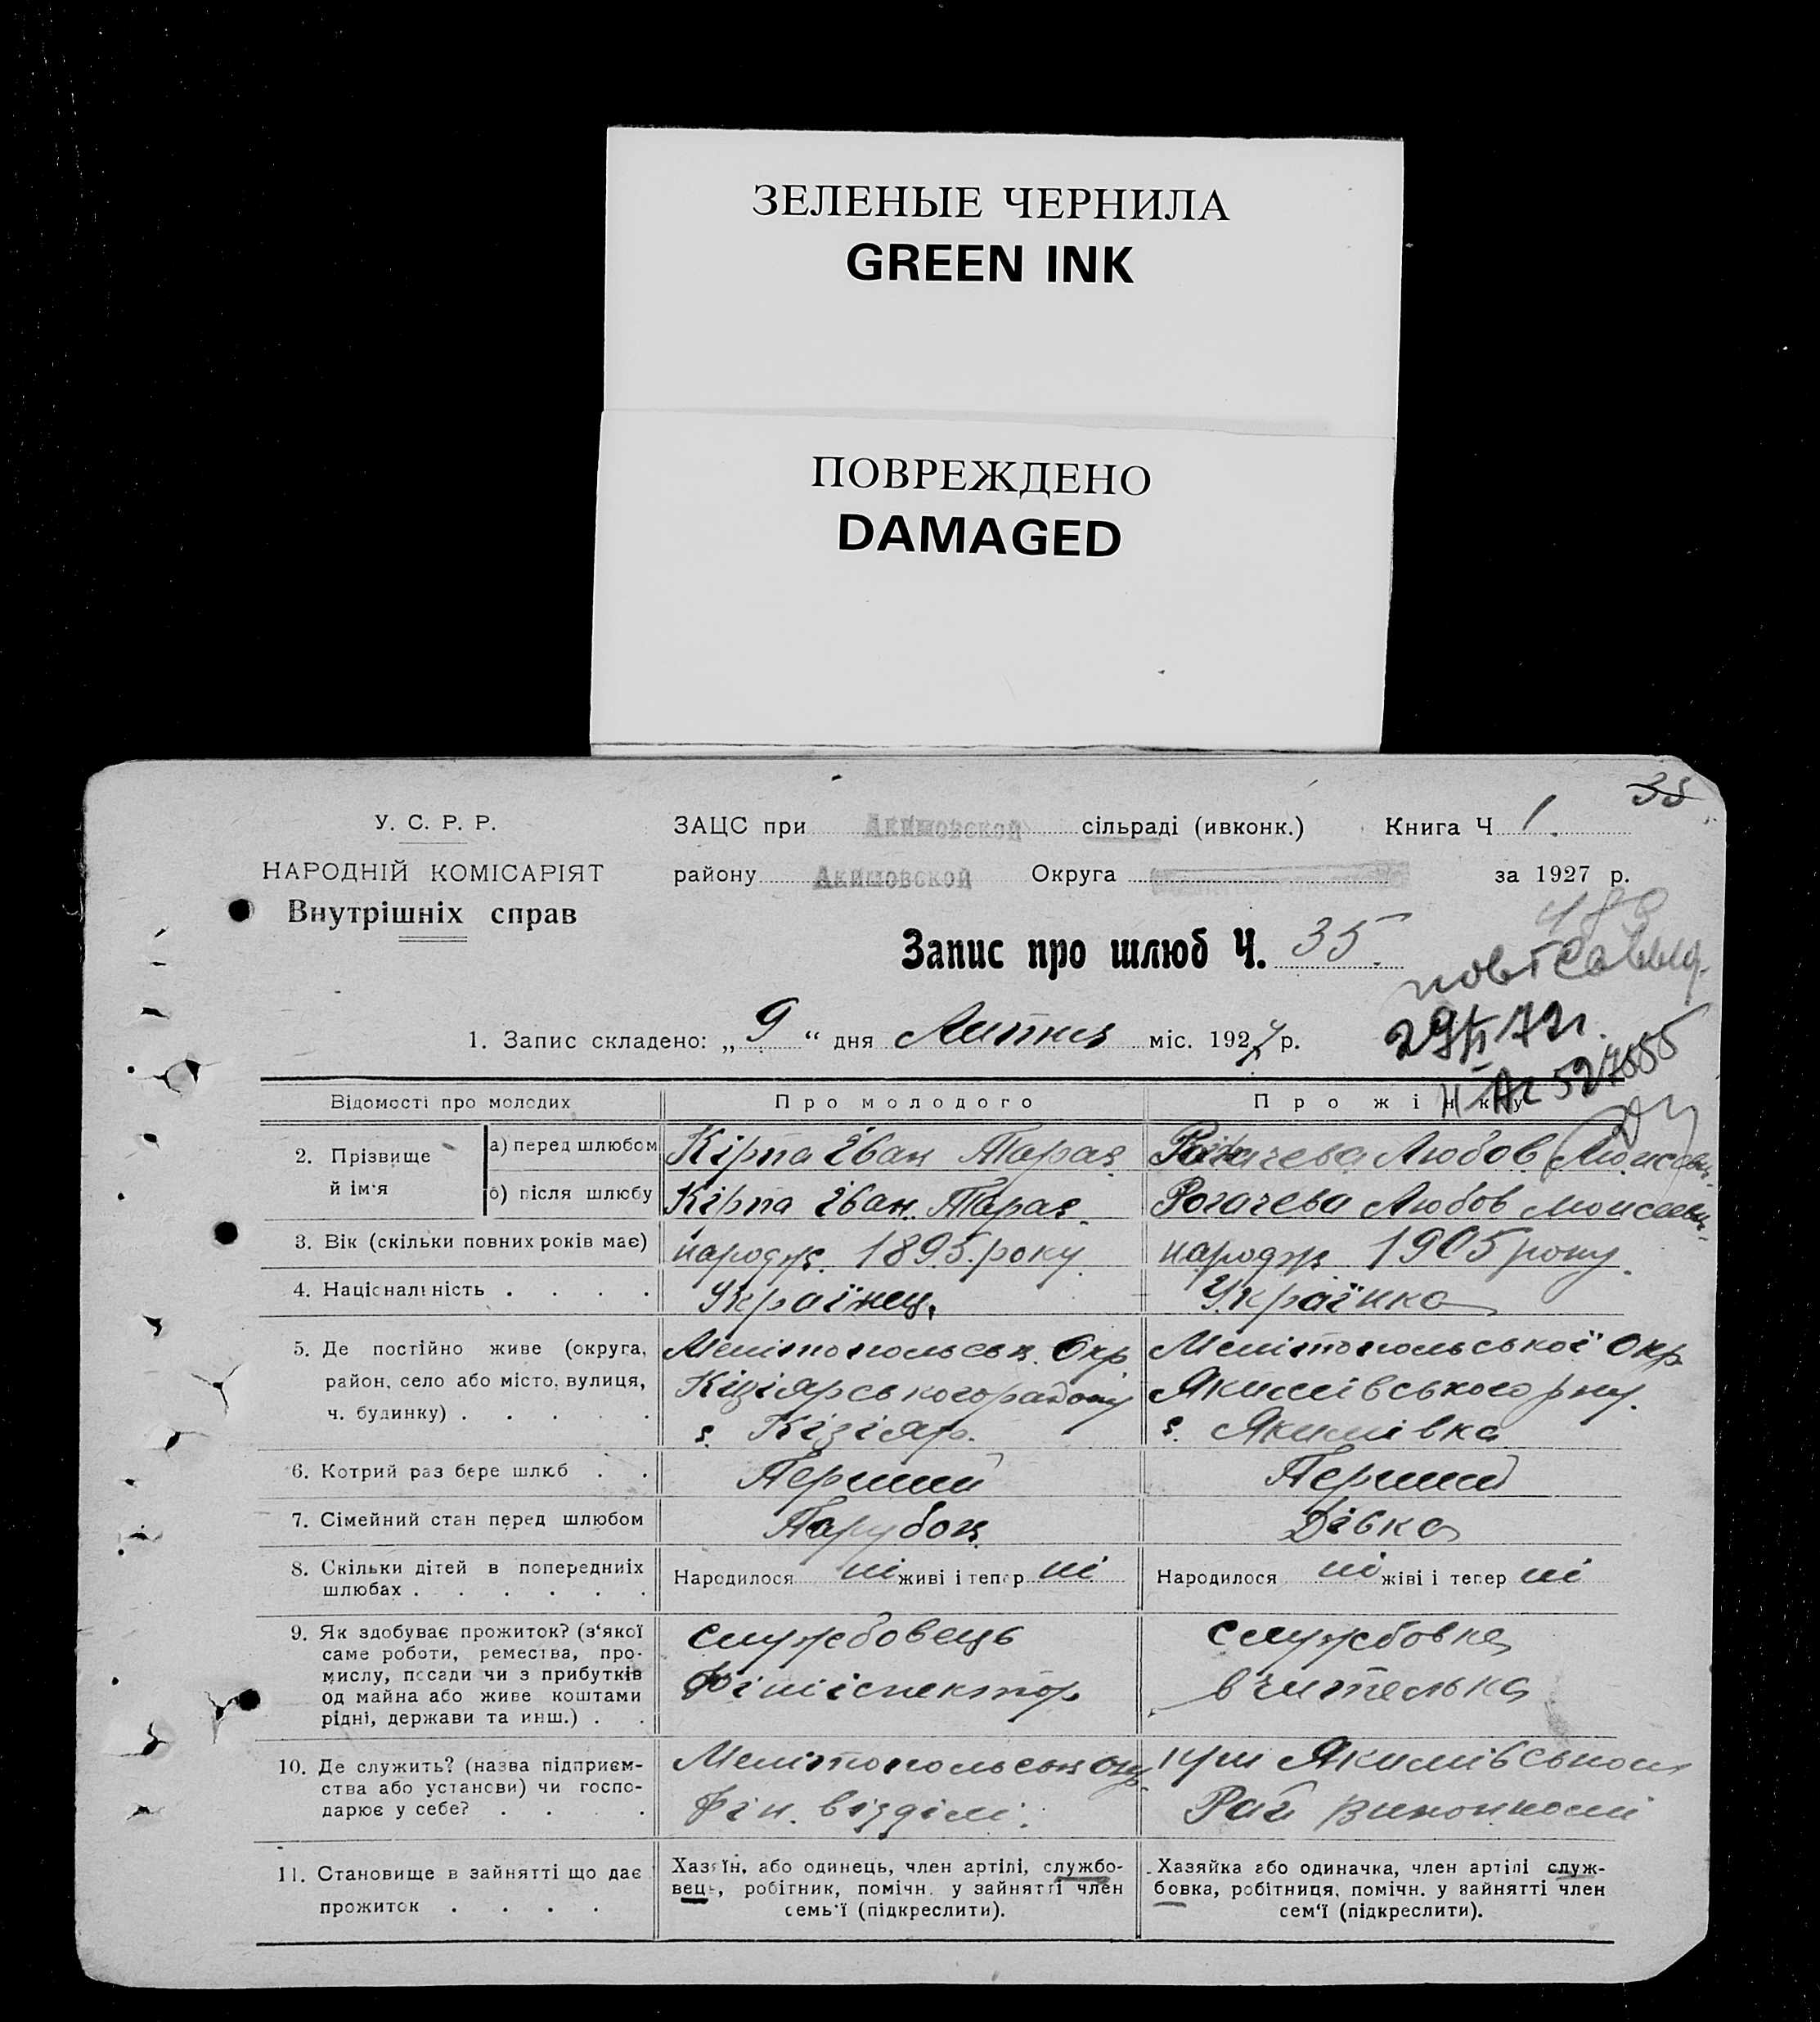 ЗЕЛЕНЫЕ ЧЕРНИЛА
GREEN INK
ПОВРЕЖДЕНО
DAMAGED
35
У. С. Р. Р.
НАРОДНІЙ КОМІСАРІЯТ
Внутрішніх справ
ЗАЦС при Акимовской сільраді (ивконк.) Книга Ч 1.
району Акимовской Округа за 1927 р.
Запис про шлюб Ч. 35.
29/VI 79г.
1. Запис складено: „ 9 “ дня Липня міс. 1927 р.
Відомості про молодих
Про молодого
Про жінку
2. Прізвище й ім'я
а) перед шлюбом
Кірпа Іван Тарас.
Рогачева Любов Моисеевн.
б) після шлюбу
Кірпа Іван Тарас.
Рогачева Любов Моисеевн.
3. Вік (скільки повних років має)
народж. 1895 року
народж. 1905 року.
4. Національність . . . .
Українец,
Українка
5. Де постійно живе (округа,
район, село або місто, вулиця,
ч. будинку) . . . . .
Мелітопольськ. Окр
Кізіярського району
с. Кізіяр.
Мелітопольської Окр
Якимівського р-ну.
с. Якимівка
6. Котрий раз бере шлюб . .
Перший
Перший
7. Сімейний стан перед шлюбом
Парубок
Дівка
8. Скільки дітей в попередніх
шлюбах . . . . . .
Народилося ні живі і тепер ні
Народилося ні жіві і тепер ні
9. Як здобуває прожиток? (з'якої
саме роботи, ремества, про-
мислу, посади чи з прибутків
од майна або живе коштами
рідні, держави та инш.) . .
службовець
Фінінспектор
службовка
вчителька
10. Де служить? (назва підприєм-
ства або установи) чи госпо-
дарює у себе? . . . .
Мелітопольськ окр.
Фін. відділі.
при Якимівськом
Рай виконкомі
11. Становище в зайнятті що дає
прожиток . . . .
Хазяїн, або одинець, член артілі, службо-
вець, робітник, помічн. у зайнятті член
семь'ї (підкреслити).
Хазяйка або одиначка, член артілі служ-
бовка, робітниця, помічн. у зайнятті член
сем'ї (підкреслити).